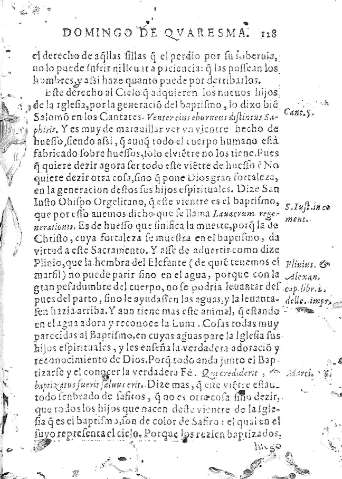 DOMINGO DE QVARESMA. 128
el derecho de aq̃llas sillas q̃ el perdio por su soberuia,
no lo puede sufrir ni lleuar a paciencia: q̃ las possean los
hombres, y assi haze quanto puede por derribarlos.
Este derecho al Cielo q̃ adquieren los nueuos hijos
de la Iglesia, por la generació del baptismo, lo dixo biẽ
Salomõ en los Cantares. Venter eius eburneus distinctus Sa-
phiris. Y es muy de marauillar ver vn vientre hecho de
huesso, siendo assi, q̃ aunq̃ todo el cuerpo humano està
fabricado sobre huessos, solo el viẽtre no los tiene. Pues
q̃ quiere dezir agora ser todo este viẽtre de huesso? No
quiere dezir otra cosa, sino q̃ pone Dios gran fortaleza,
en la generacion destos sus hijos espirituales. Dize San
Iusto Obispo Orgelitano, q̃ este vientre es el baptismo,
que por esso auemos dicho que se llama Lauacrum rege-
nerationis. Es de huesso que sinifica la muerte, porq̃ la de
Christo, cuya fortaleza se muestra en el baptismo, da
virtud à este Sacramento. Y asse de aduertir como dize
Plinio, que la hembra del Elefante (de quiẽ tenemos el
marfil) no puede parir sino en el agua, porque con la
gran pesadumbre del cuerpo, no se podria leuantar des
pues del parto, sino le ayudassen las aguas, y la leuanta-
sen hazia arriba. Y aun tiene mas este animal, q̃ estando
en el agua adora y reconoce la Luna. Cosas todas muy
parecidas al Baptismo, en cuyas aguas pare la Iglesia sus
hijos espirituales, y les enseña la verdadera adoració y
reconocimiento de Dios. Porq̃ todo anda junto el Bap-
tizarse y el conocer la verdadera Fè. Qui crediderit,
baptizatus fuerit saluus erit. Dize mas, q̃ este viẽtre estaua
todo sembrado de safiros, q̃ no es otra cosa sino dezir,
que todos los hijos que nacen deste vientre de la Igle-
sia q̃ es el baptismo, son de color de Safiro: el qual en el
suyo representa el cielo. Porque los rezien baptizados,
luego
Cant. 5.
S. Iust. in co
ment.
Plinius.
Alexan.
cap. libr. 1.
delle. impr.